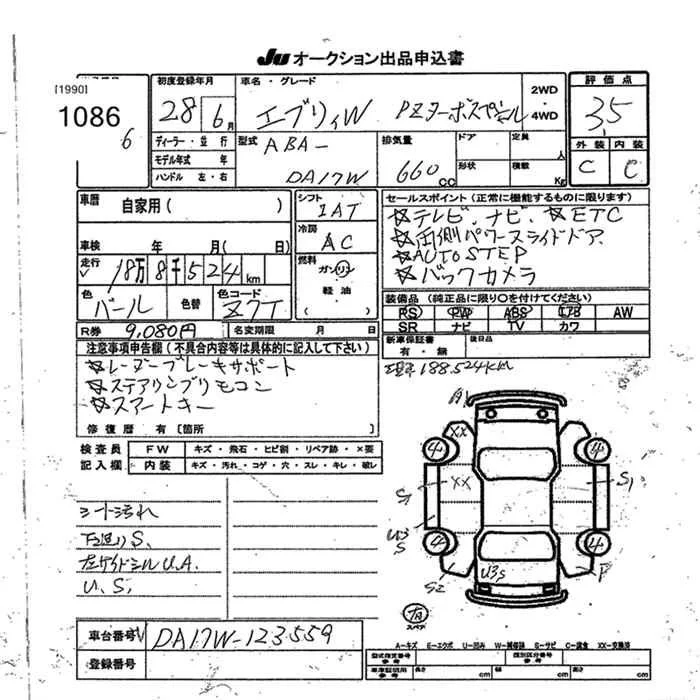 JU オークション出品申込書
[1990]
1086
6
初度登録年月
28 6月
車名・グレード
エブリィW PZターボスペシャル
2WD
・
4WD
評価点
3.5
外装 内装
C C
ディーラー・並行
モデル年式 年
ハンドル 左・右
型式
ABA-
DA17W
排気量
660 CC
ドア
形状
定員
人
積載
Kg
車歴
自家用( )
車検 年 月( 日)
走行
18万8千524km
色
パール
色替
色コード
Z7T
シフト
IAT
冷房
AC
燃料
ガソリン
軽油
( )
セールスポイント(正常に機能するものに限ります)
☆テレビ、ナビ、☆ETC
☆両側パワースライドドア、
☆AUTO STEP
☆バックカメラ
装備品(純正品に限り○を付けてください)
PS PW ABS エアB AW
SR ナビ TV カワ
R券 9,080円 名変期限 月 日
新車保証書
有・無
後日品
注意事項申告欄(不具合内容等は具体的に記入して下さい)
☆レーダーブレーキサポート
☆ステアリングリモコン
☆スマートキー
修復歴 有〔箇所 〕
現車188.524KM
検査員
記入欄
FW キズ・飛石・ヒビ割・リペア跡・×要
内装 キズ・汚れ・コゲ・穴・スレ・キレ・破レ
シート汚れ
下廻りS、
左サイドシルU.A.
U、S、
A1
XX
4 4
XX
S1 S1
U3
S
4 4
S2 U3S P
有
スペア
車台番号 DA17W-123559
登録番号
A−キズ E−エクボ U−凹み W−補修跡 S−サビ C−腐食 XX−交換済
型式指定番号
参考
類別区分番号
参考
車検証明
参考
長さ cm 幅 cm 高さ cm